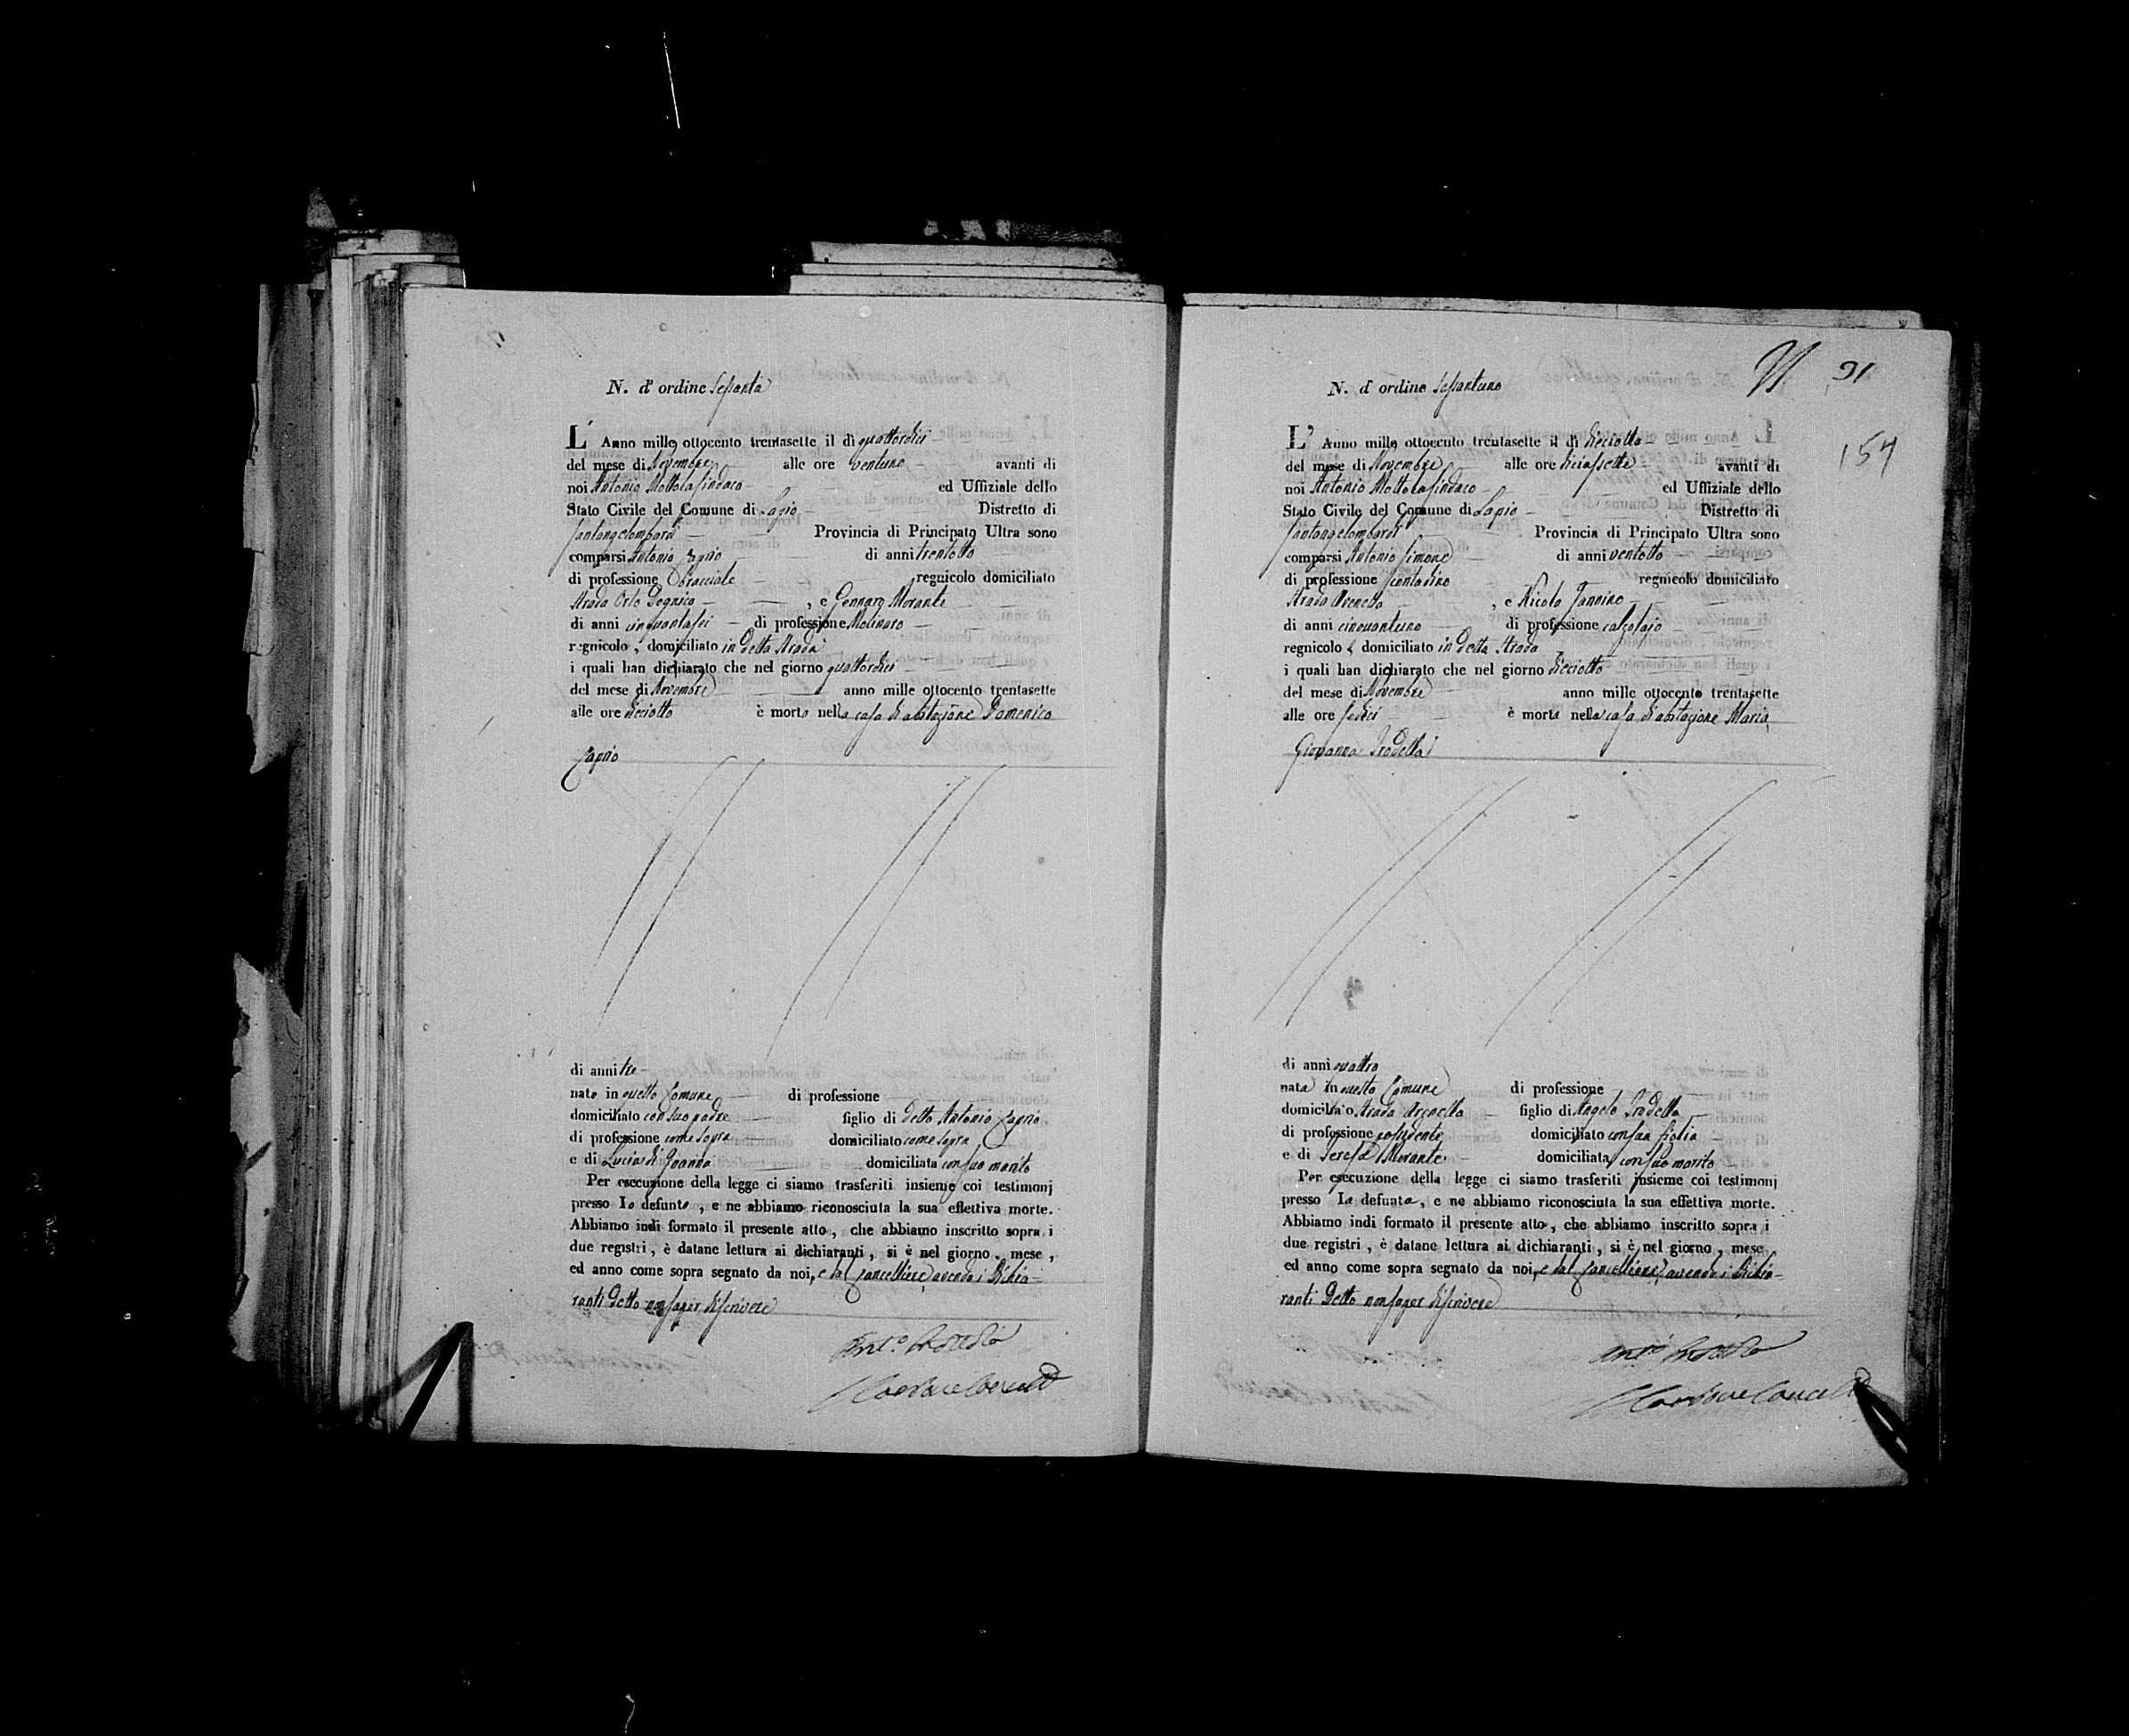 N. d'ordine Sessanta
L' Anno mille ottocento trentasette il dì quattordici
del mese di Novembre alle ore ventuno avanti di
noi Antonio Mottola Sindaco ed Uffiziale dello
Stato Civile del Comune di Lapio Distretto di
Santangelombardi Provincia di Principato Ultra sono
comparsi Antonio Caprio di anni trentotto
di professione Bracciale regnicolo domiciliato
Strada Orto , e Gennaro Morante
di anni cinquantasei di professione Molinaro
regnicolo , domiciliato in detta Strada
i quali han dichiarato che nel giorno quattordici
del mese di Novembre anno mille ottocento trentasette
alle ore dieciotto è morto nella casa di abitazione Domenico
Caprio
di anni tre
nato in questo Comune di professione
domiciliato con suo padre figlio di detto Antonio Caprio
di professione come sopra domiciliato come sopra
e di Lucia di domiciliata con suo marito
Per esecuzione della legge ci siamo trasferiti insieme coi testimonj
presso lo defunto , e ne abbiamo riconosciuta la sua effettiva morte.
Abbiamo indi formato il presente atto , che abbiamo inscritto sopra i
due registri , è datane lettura ai dichiaranti , si è nel giorno , mese ,
ed anno come sopra segnato da noi, e dal Cancelliere avendo i dichia-
ranti detto non saper di scrivere
N. d'ordine Sessantuno
91
157
L' Anno mille ottocento trentasette il dì dieciotto
del mese di Novembre alle ore diciassette avanti di
noi Antonio Mottola Sindaco ed Uffiziale dello
Stato Civile del Comune di Lapio Distretto di
Santangelombardi Provincia di Principato Ultra sono
comparsi Antonio Simone di anni ventotto
di professione Contadino regnicolo domiciliato
Strada Arenella , e Nicola Iannino
di anni cinquantuno di professione calzolajo
regnicolo e domiciliato in detta Strada
i quali han dichiarato che nel giorno dieciotto
del mese di Novembre anno mille ottocento trentasette
alle ore sedici è morta nella casa di abitazione Maria
Giovanna Trodella
di anni quattro
nata in questo Comune di professione
domiciliato Strada Arenella figlio di Angelo Trodella
di professione possidente domiciliato con sua figlia
e di Teresa Morante domiciliata con suo marito
Per esecuzione della legge ci siamo trasferiti insieme coi testimonj
presso la defunta , e ne abbiamo riconosciuta la sua effettiva morte.
Abbiamo indi formato il presente atto , che abbiamo inscritto sopra i
due registri , è datane lettura ai dichiaranti , si è nel giorno , mese
ed anno come sopra segnato da noi, e dal Cancelliere avendo i dichia-
ranti detto non saper di scrivere